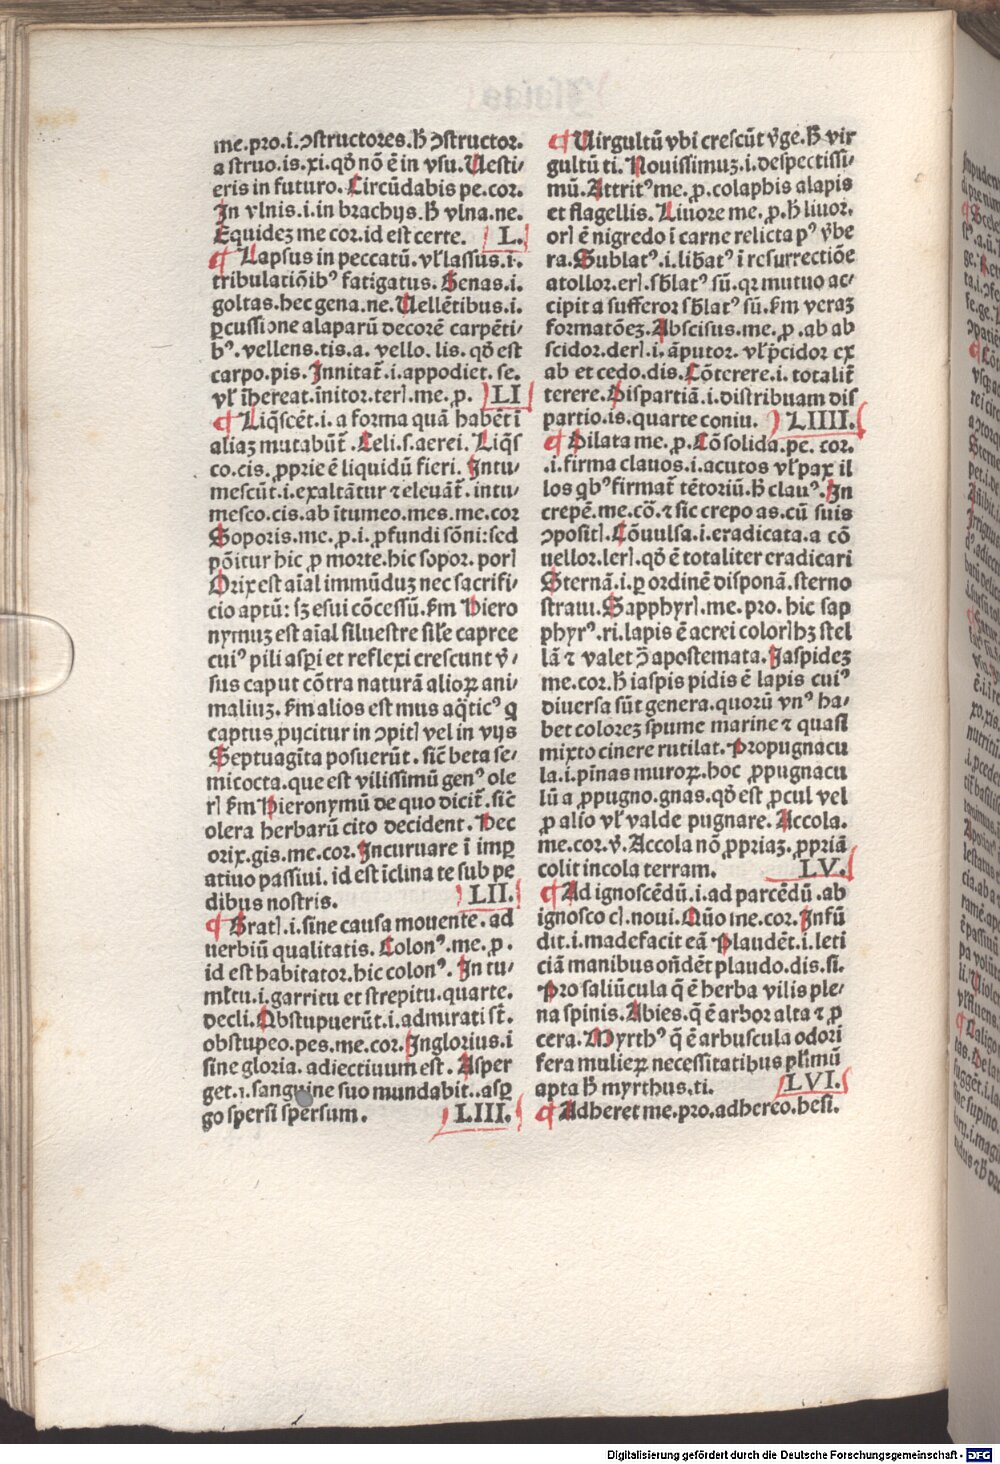 me.pro.i.ↄstructores.h̄ ↄstructor.
a struo.is.xi.qđ nō ē in vsu.Uesti-
eris in futuro.Circūdabis pe.cor.
In vlnis.i.in brachijs.h̄ vlna.ne.
Equidez me cor.id est certe. L.
¶ Lapsus in peccatū.vl̓ lassus.i.
tribulatiōib⁹ fatigatus.Genas.i.
goltas.hec gena.ne.Uellētibus.i.
ꝑcussione alaparū decorē carpēti-
b⁹.vellens.tis.a. vello.lis.qđ est
carpo.pis.Innitat̄.i.appodiet.se.
vl̓ īhereat.īnitor.terꝭ.me.ꝓ. LI
¶ Liq̄scēt.i.a forma quā habēt i
aliaz mutabūt̄.Celi.s.aerei.Liq̄s
co.cis.ꝓprie ē liquidū fieri.Intu-
mescūt.i.exaltātur ⁊ eleuāt̄.intu-
mesco.cis.ab ītumeo.mes.me.cor
Soporis.me.ꝓ.i.ꝓfundi sōni:sed
pōitur hic ꝓ morte.hic sopor.porꝭ
Orix est aīal immūduz nec sacrifi-
cio aptū:sꝫ esui cōcessū.ẜm Hiero
nymuz est aīal siluestre sil̓e capree
cui⁹ pili aspi et reflexi crescunt v̄-
sus caput cōtra naturā alioꝝ ani-
maliuꝫ.ẜm alios est mus aq̄tic⁹ q
captus ꝓijcitur in ↄpitꝭ vel in vijs
Septuagīta posuerūt.sic̄ beta se-
micocta.que est vilissimū gen⁹ ole
rꝭ ẜm Hieronymū de quo dicit̄.sic̄
olera herbarū cito decident.Hec
orix.gis.me.cor.Incuruare ī imꝑ
atiuo passiui.id est īclina te sub pe
dibus nostris. LII.
¶ Gratꝭ.i.sine causa mouente.ad
uerbiū qualitatis.Colon⁹.me.ꝓ.
id est habitator.hic colon⁹.In tu-
ml̓tu.i.garritu et strepitu.quarte.
decli.Obstupuerūt.i.admirati st̄.
obstupeo.pes.me.cor.Inglorius.i
sine gloria.adiectiuum est.Asper
get.i.sanguine suo mundabit..asꝑ
go spersi spersum. LIII.
¶ Uirgultū vbi crescūt v̄ge.h̄ vir
gultū ti.Nouissimuꝫ.i.despectissi-
mū.Attrit⁹ me.ꝓ.colaphis alapis
et flagellis.Liuore me.ꝓ.h̄ liuor.
orꝭ ē nigredo ī carne relicta p⁹ v̄be
ra.Sublat⁹.i.lib̄at⁹ ī resurrectiōe
a tollor.erꝭ.sb̄lat⁹ sū.qꝛ mutuo ac-
cipit a sufferor sb̄lat⁹ sū.ẜm veraꝫ
formatōeꝫ.Abscisus.me.ꝓ.ab ab
scidor.derꝭ.i.āputor.vl̓ p̄cidor ex
ab et cedo.dis.Cōterere.i.totalit̄
terere.Dispartiā.i.distribuam dis
partio.is.quarte coniu. LIIII.
¶ Dilata me.ꝓ.Cōsolida.pe.cor.
.i.firma clauos.i.acutos vl̓ pax il
los qb⁹ firmat̄ tētoriū.h̄ clau⁹.In
crepē.me.cō.⁊ sic crepo as.cū suis
ↄpositꝭ.Cōuulsa.i.eradicata.a cō
uellor.lerꝭ.qđ ē totaliter eradicari
Sternā.i.ꝑ ordinē disponā.sterno
straui.Sapphyrꝭ.me.pro.hic sap
phyr⁹.ri.lapis ē aerei colorꝭ hꝫ stel
lā ⁊ valet ↄ̄ apostemata.Iaspideꝫ
me.cor.h̄ iaspis pidis ē lapis cui⁹
diuersa sūt genera.quorū vn⁹ ha-
bet coloreꝫ spume marine ⁊ quasi
mixto cinere rutilat.Propugnacu
la.i.pīnas muroꝝ.hoc ꝓpugnacu
lū a ꝓpugno.gnas.qđ est ꝓcul vel
ꝓ alio vl̓ valde pugnare.Accola.
me.cor.v̄.Accola nō ꝓpriaꝫ.ꝓpriā
colit incola terram. LV.
¶ Ad ignoscēdū.i.ad parcēdū.ab
ignosco cꝭ.noui.Qūo me.cor.Infū
dit.i.madefacit eā Plaudēt.i.leti
ciā manibus oñdēt plaudo.dis.si.
Pro saliūcula q̄ ē herba vilis ple-
na spinis.Abies.q̄ ē arbor alta ⁊ ꝓ
cera.Myrth⁹ q̄ ē arbuscula odori
fera mulieꝝ necessitatibus pl̓imū
apta h̄ myrthus.ti. LVI.
¶ Adheret me.pro.adhereo.hesi.
Digitalisierung gefördert durch die Deutsche Forschungsgemeinschaft - DFG